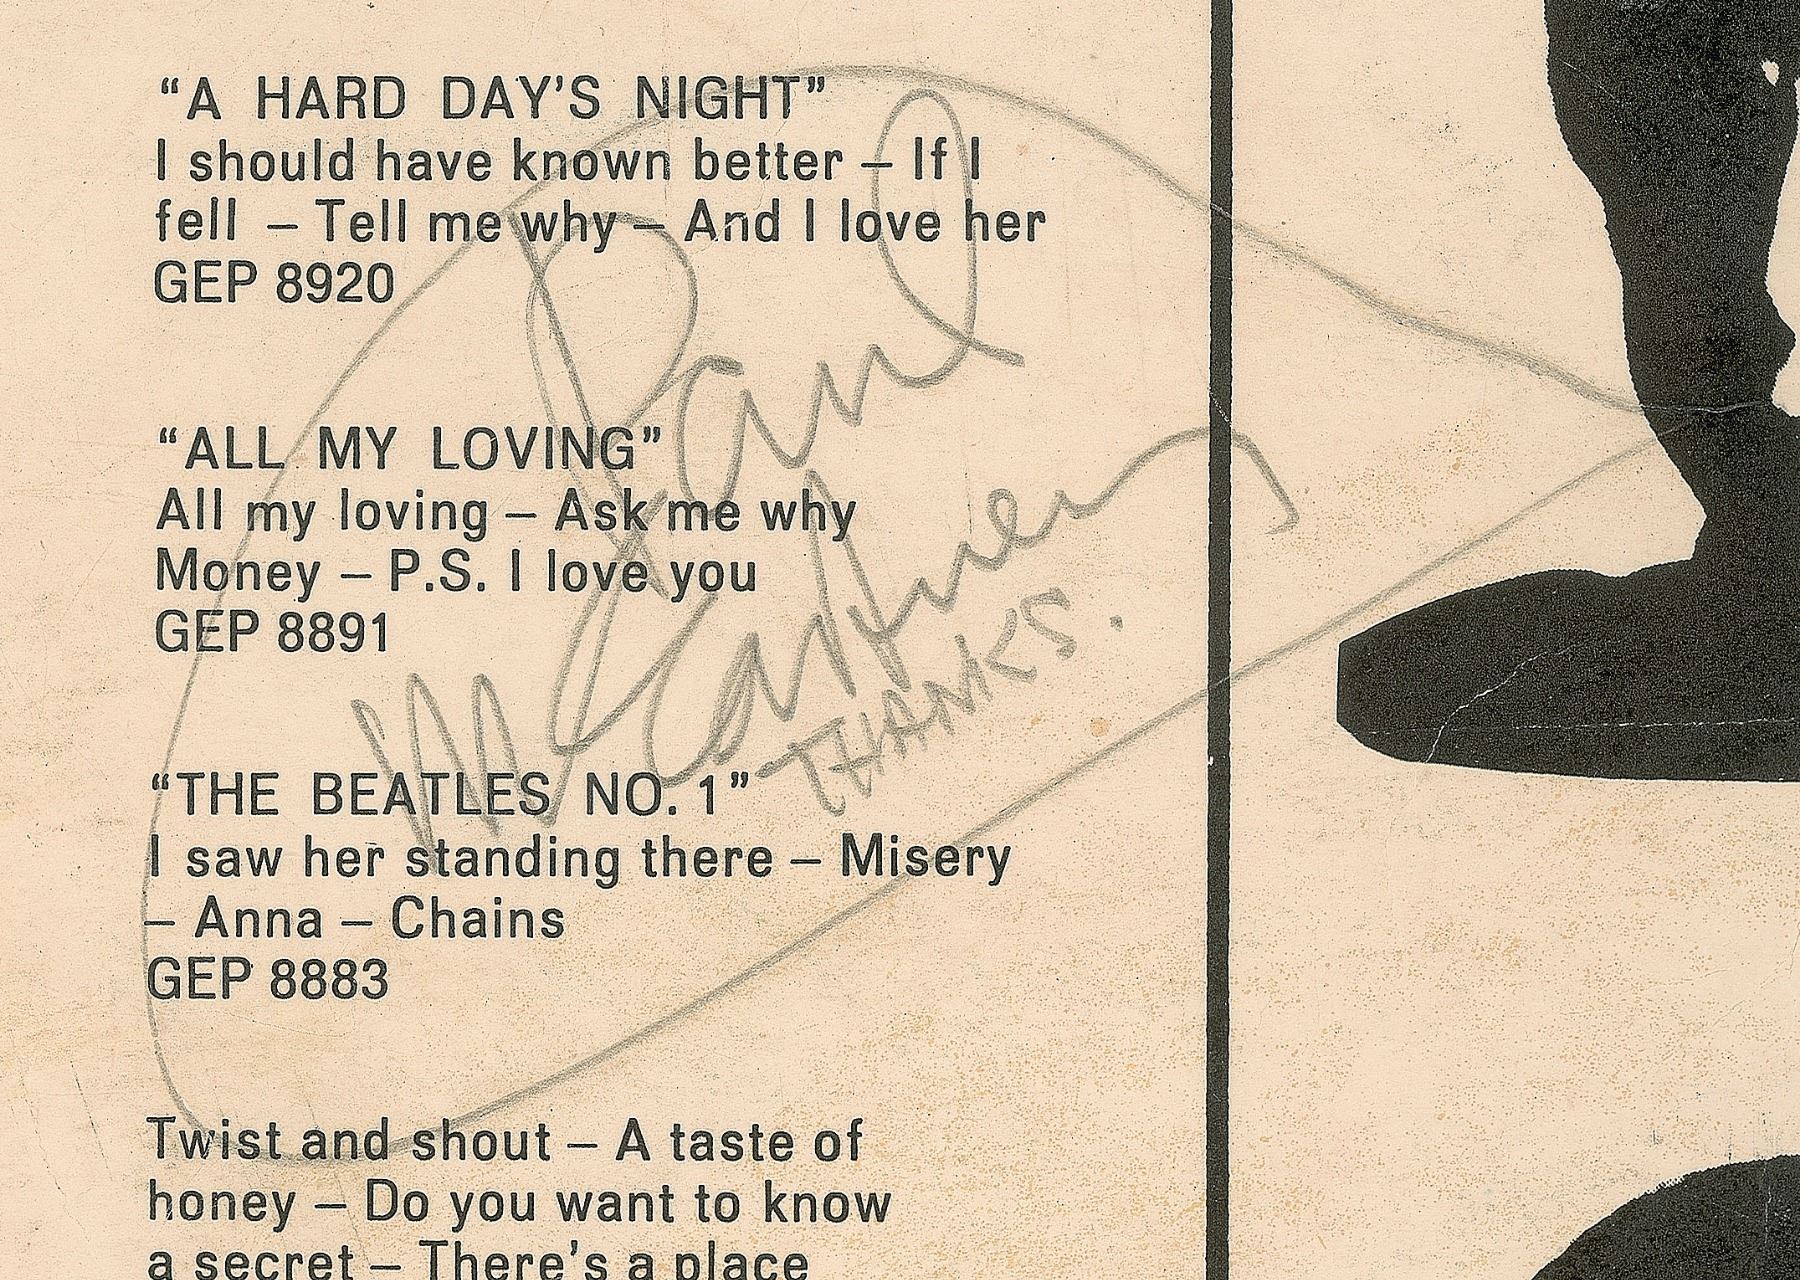 “A HARD DAY’S NIGHT”
I should have known better – If I
fell – Tell me why – And I love her
GEP 8920
“ALL MY LOVING”
All my loving – Ask me why
Money – P.S. I love you
GEP 8891
“THE BEATLES NO. 1”
I saw her standing there – Misery
– Anna – Chains
GEP 8883
Twist and shout – A taste of
honey – Do you want to know
a secret – There’s a place
Paul
McCartney
THANKS.